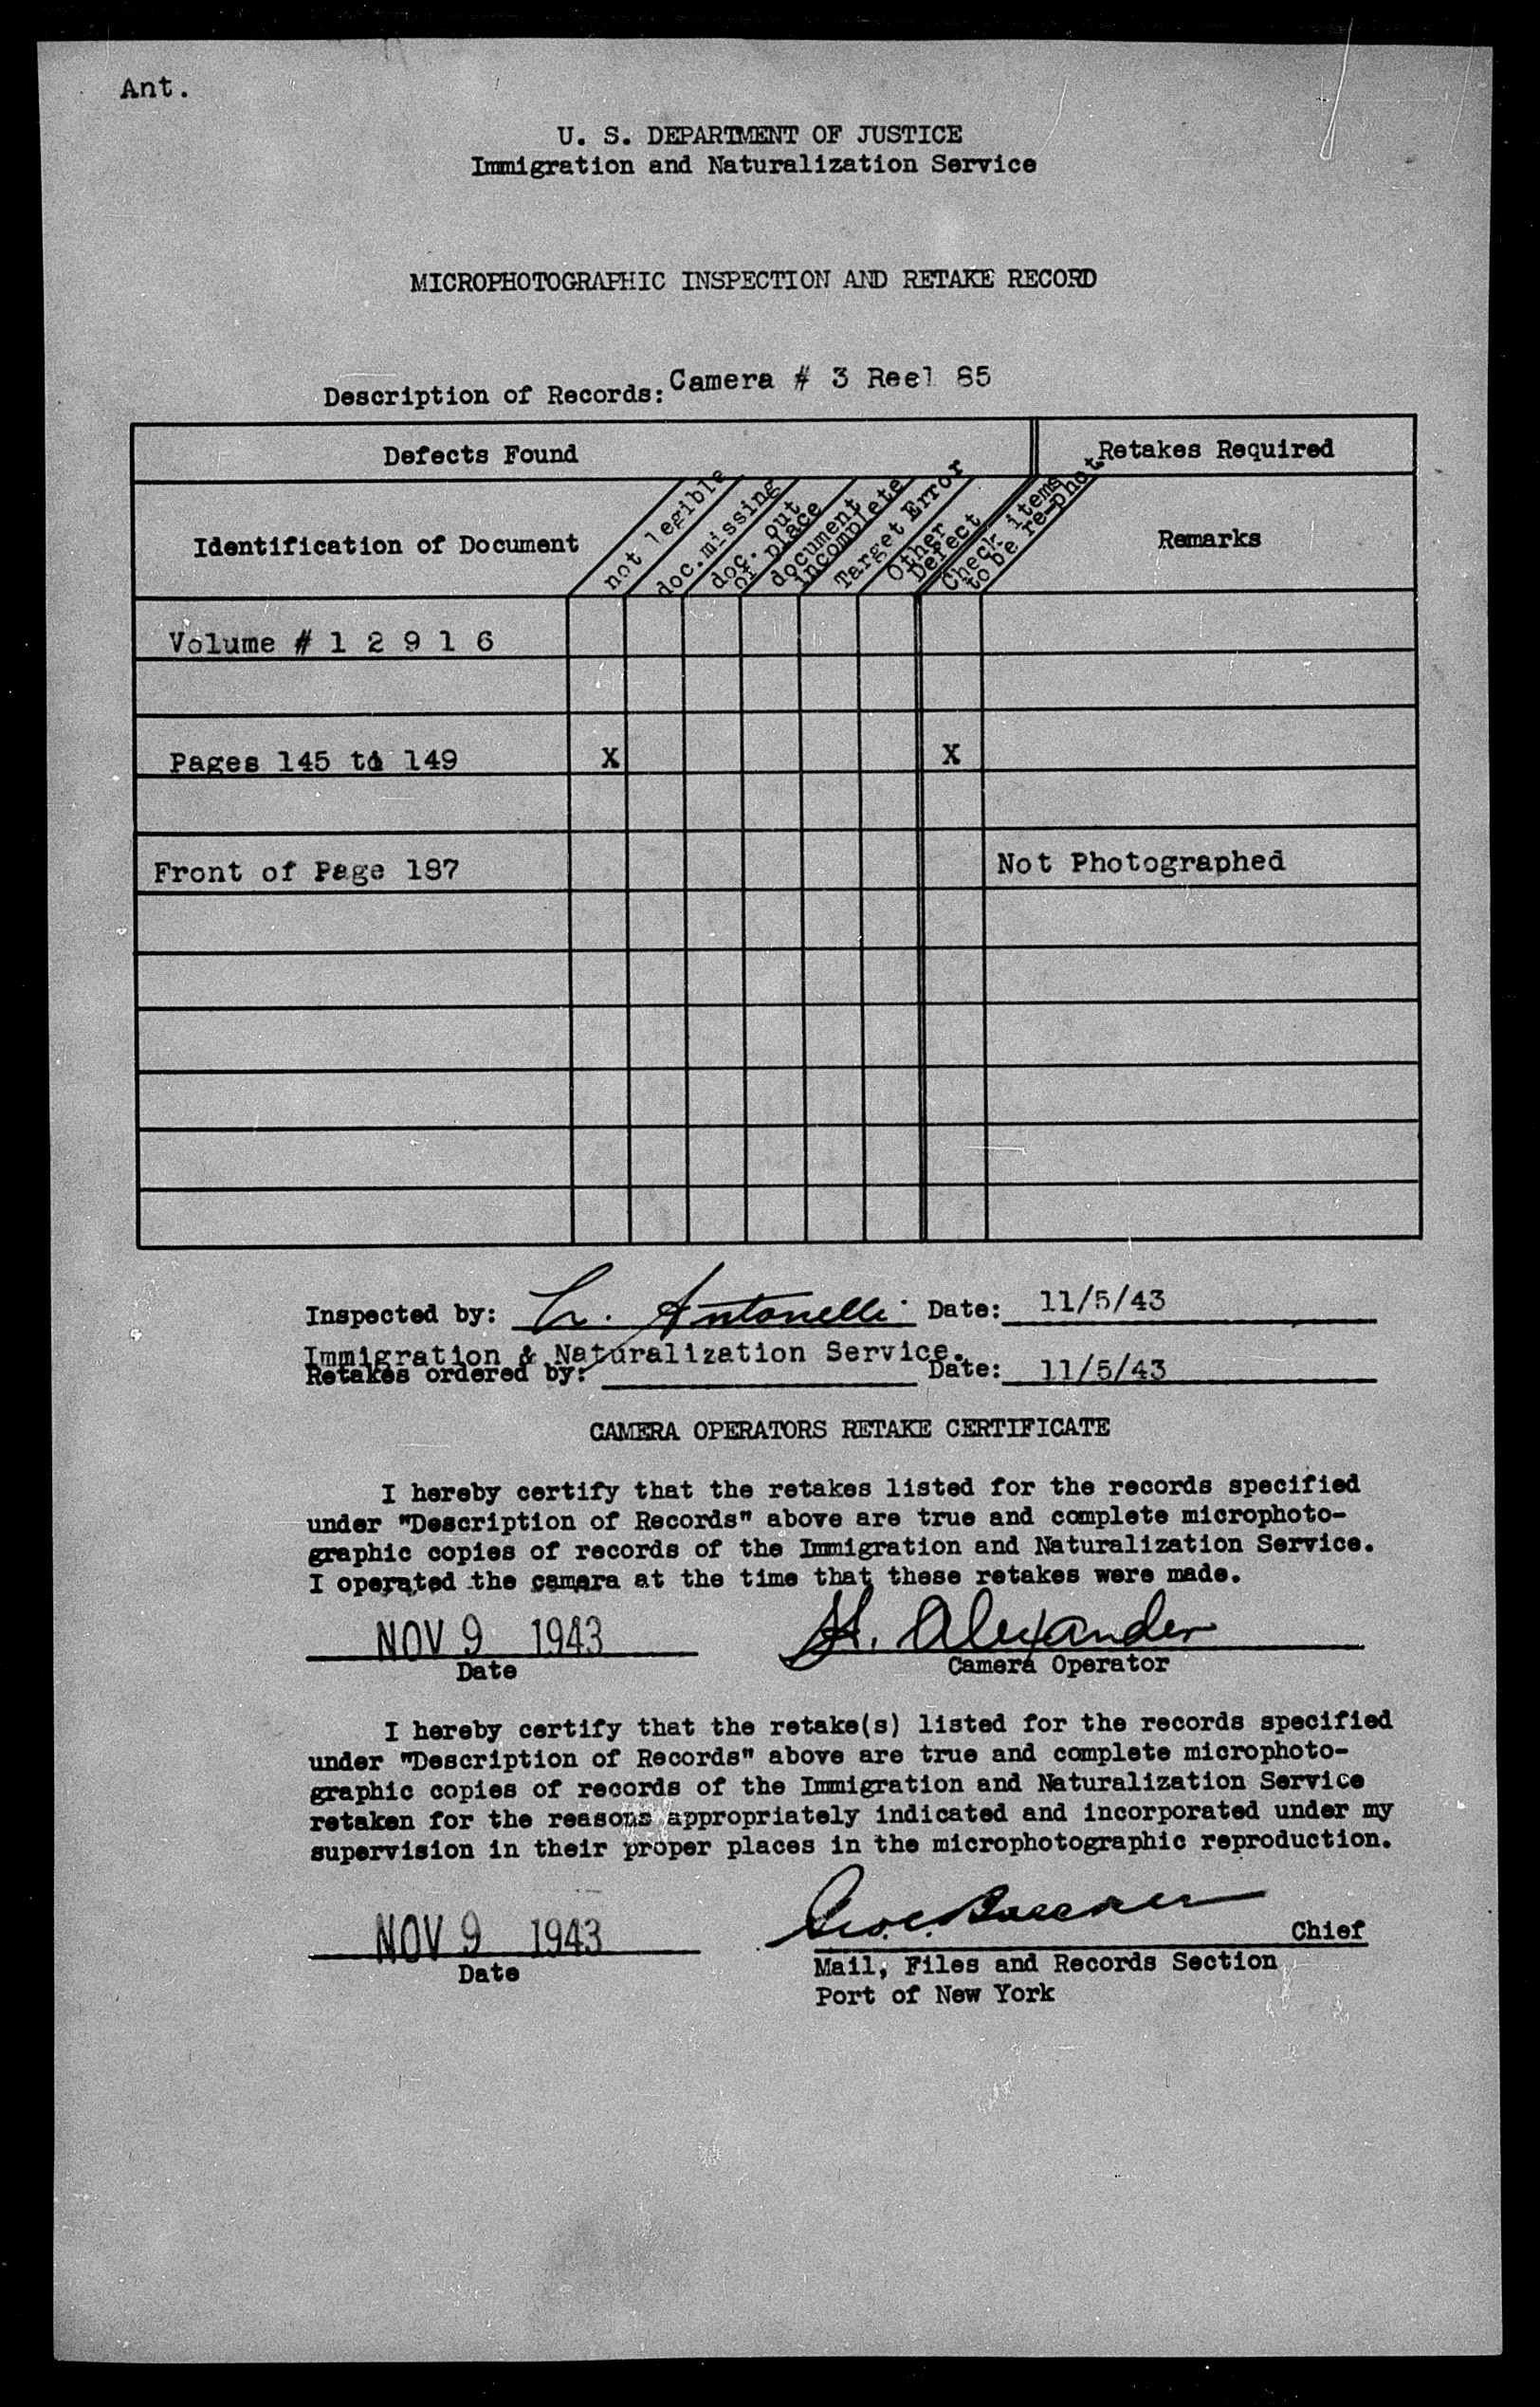 Ant.
U. S. DEPARTMENT OF JUSTICE
Immigration and Naturalization Service
MICROPHOTOGRAPHIC INSPECTION AND RETAKE RECORD
Description of Records: Camera # 3 Reel 85
Defects Found
Retakes Required
Identification of Document
not legible
doc. missing
doc. out
of place
document
incomplete
Target Error
Other
Defect
Check items
to be re-phot.
Remarks
Volume # 1 2 9 1 6
Pages 145 to 149 X X
Front of Page 187 Not Photographed
Inspected by: L. Antonelli Date: 11/5/43
Immigration & Naturalization Service.
Retakes ordered by: Date: 11/5/43
CAMERA OPERATORS RETAKE CERTIFICATE
I hereby certify that the retakes listed for the records specified
under "Description of Records" above are true and complete microphoto-
graphic copies of records of the Immigration and Naturalization Service.
I operated the camera at the time that these retakes were made.
NOV 9 1943 H. Alexander
Date Camera Operator
I hereby certify that the retake(s) listed for the records specified
under "Description of Records" above are true and complete microphoto-
graphic copies of records of the Immigration and Naturalization Service
retaken for the reasons appropriately indicated and incorporated under my
supervision in their proper places in the microphotographic reproduction.
NOV 9 1943 Chief
Date
Mail, Files and Records Section
Port of New York